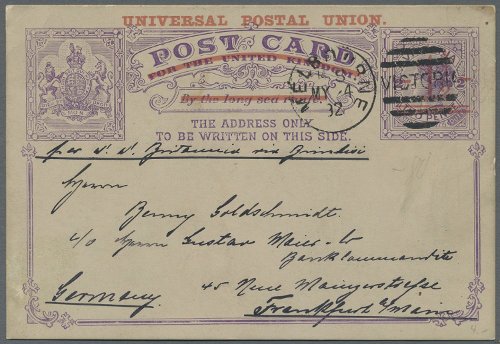 UNIVERSAL POSTAL UNION.
POST CARD
FOR THE UNITED KINGDOM
By the long sea route.
THE ADDRESS ONLY
TO BE WRITTEN ON THIS SIDE.
MELBOURNE
MY 4
92
VICTORIA
per S. S. Britannia via Brindisi
Herrn
Benny Goldschmidt.
c/o Herrn Gustav Maier & Co
Bankcommandite
45 Neue Mainzerstrasse
Germany.
Frankfurt a/Main